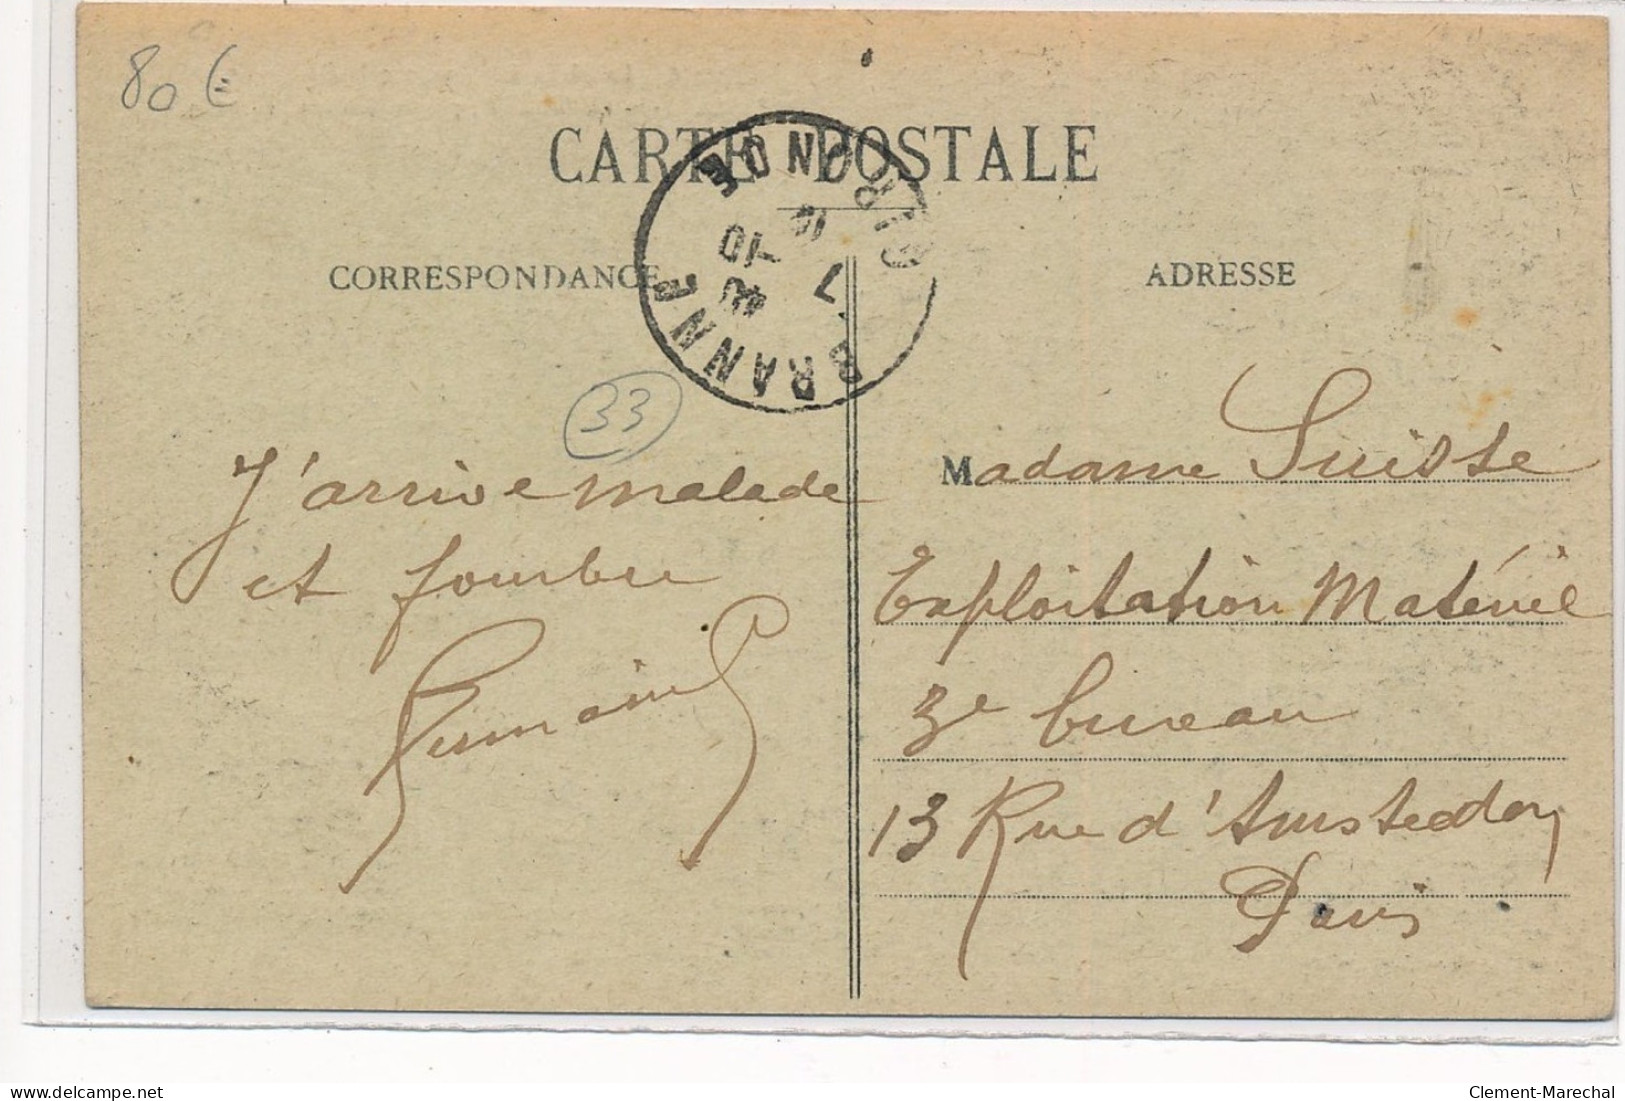 80 €
CARTE POSTALE
BRANNE
GIRONDE
CORRESPONDANCE
ADRESSE
33
J'arrive malade
et fourbu
Madame Suisse
Exploitation Matériel
3e bureau
13 Rue d'Amsterdam
Paris
delcampe.net
Clement-Marechal